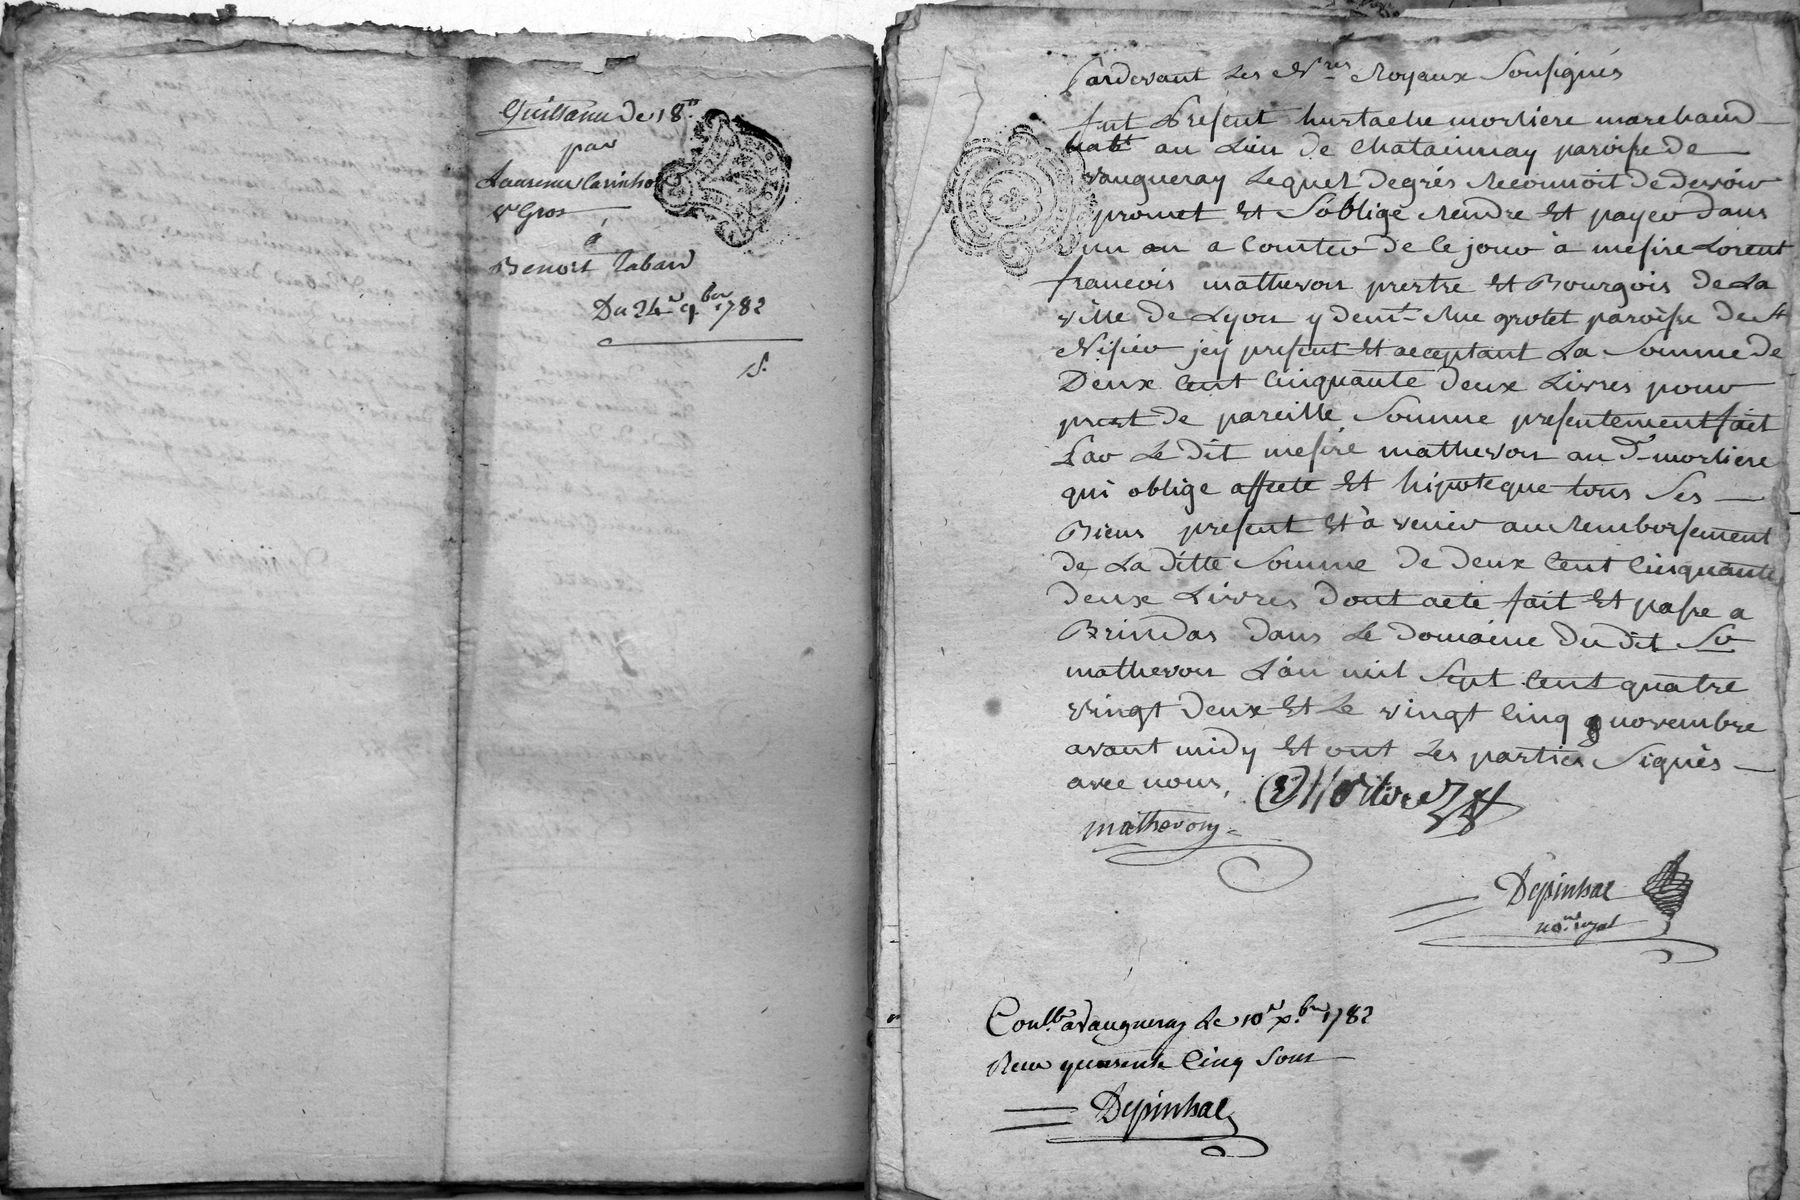 Quittance de 18#
par
Laurence Carinho
Ve Gros
à
Benoit Tabard
Du 24e 9bre 1782
Pardevant Les Nres Royaux Sousignés
fut Présent hustache mortiere marchand
habt au Lieu de Chatainnay paroisse de
vaugneray Lequel degrés Reconnoit de devoir
promet Et Soblige Rendre Et payer dans
un an a Comter de Ce jour à messire Lorent
francois mathevon prertre Et Bourgois de La
ville de Lyon y demt Rue grolet paroisse de St
Nisier jcy present Et acceptant La Somme de
Deux Cent Cinquante deux Livres pour
prest de pareille Somme presentement fait
Par Le dit messire mathevon au dt mortiere
qui oblige affecte Et hipoteque tous Ses
Biens present Et à venir au Remborsement
de La ditte Somme de deux Cent Cinquante
deux Livres dont acte fait Et passe a
Brindas dans Le domaine du dit Sr
mathevon L'an mil Sept Cent quatre
vingt deux Et Le vingt Cinq novembre
avant midy Et ont Les parties Signés
avec nous,
Mortiere
mathevon
Depinhac
nore royal
Conllé a Vaugneray Le 10e Xbre 1782
Reçu quarente Cinq Sous
Depinhac